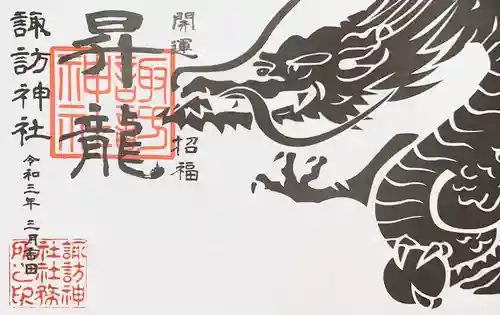 開運
招福
昇龍
諏訪神社
諏訪神社
令和三年 三月吉日
諏訪神
社社務
所之印